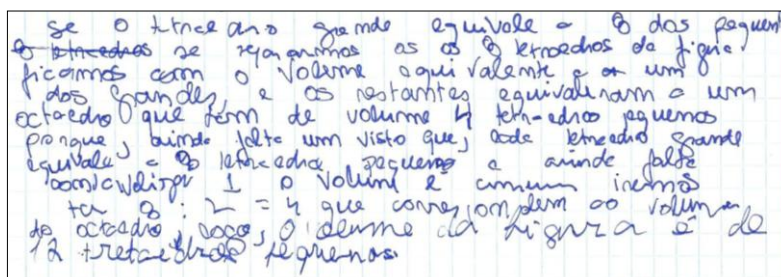 se o tetraedro grande equivale a 8 dos pequen
8 tetraedros se rejonarmos as os 8 tetraedros da figura
ficamos com o volume equivalente a um
dos grandes, e os restantes equivaleram a um
octaedro que tem de volume 4 tetraedros pequenos
porque, ainda falta um visto que, cada tetraedro grande
equivale a 8 tetraedros pequenos e ainda falta
1 o volume é comum iremos
ter 8 : 2 = 4 que correspondem ao volume
do octaedro, logo, o volume da figura é de
12 tretaedros pequenos.